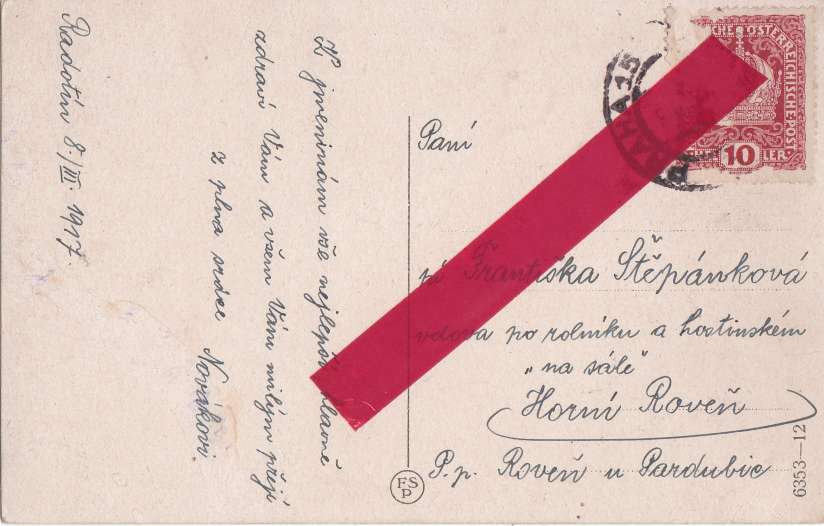 Radotín 8./III. 1917.
K jmeninám vše nejlepší hlavně
zdraví Vám a všem Vám milým přejí
z plna srdce Novákovi
Paní
Františka Štěpánková
vdova po rolníku a hostinském
„na sálé“
Horní Roveň
P. p. Roveň u Pardubic
ÖSTERREICHISCHE POST
10
PRAHA 15
FSP
6353—12